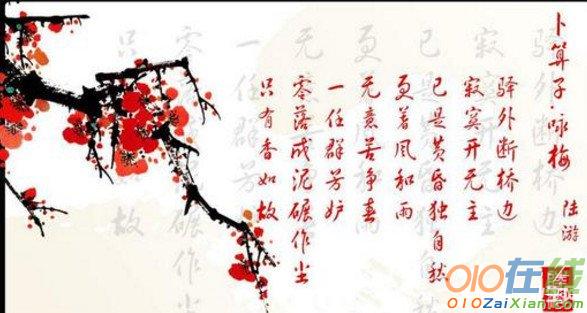 卜算子·咏梅
陆游
驿外断桥边
寂寞开无主
已是黄昏独自愁
更著风和雨
无意苦争春
一任群芳妒
零落成泥碾作尘
只有香如故
010在线
010ZaiXian.com